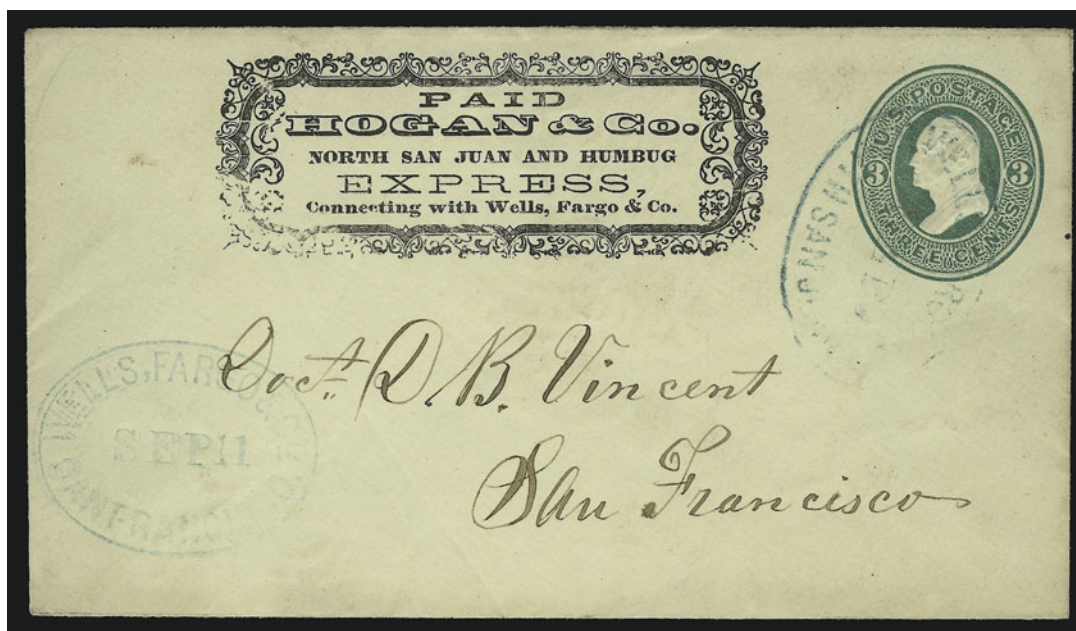 PAID
HOGAN & Co.
NORTH SAN JUAN AND HUMBUG
EXPRESS,
Connecting with Wells, Fargo & Co.
U.S. POSTAGE
3 3
THREE CENTS
Doct. D. B. Vincent
San Francisco
WELLS, FARGO & CO
SEP 11
SAN FRAN